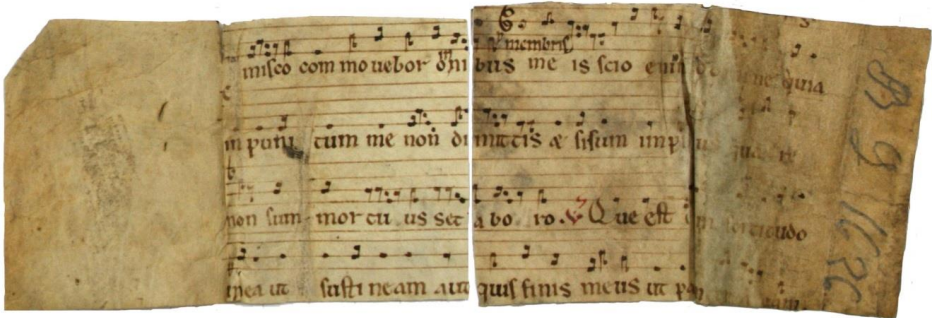 membris
misco com mo uebor om̅i bus me is scio enim quia
in puni tum me non di mittis æ si sum impi us
non sum mor tu us set la bo ro V Que est fortitudo
mea ut susti neam aut quis finis meus ut